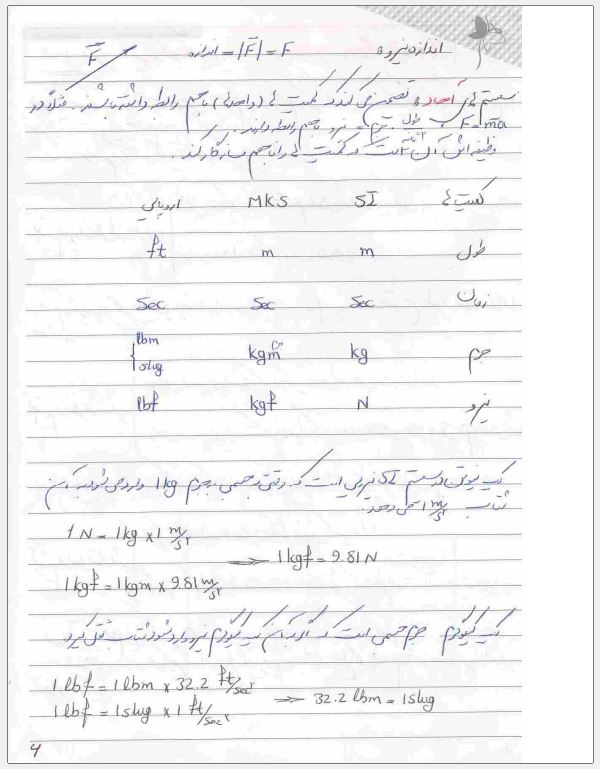 اندازه نیرو: اندازه = |F̅| = F
F̅
سیستم های آحاد: تضمین می کند که کمیت های (واحدهای) با هم رابطه داشته باشند. مثلاً در
F = m̅a، طول، جرم و نیرو با هم رابطه دارند.
وظیفه اش آن است که کمیت ها را با هم سازگار کند.
کمیت ها SI MKS اروپایی
طول m m ft
زمان Sec Sec Sec
جرم kg kgm جرم { lbm slug
نیرو N kgf lbf
یک نیوتن در سیستم SI نیرویی است که وقتی به جسمی به جرم 1kg وارد می شود به آن
شتاب 1 m/s² می دهد.
1 N = 1kg × 1 m/s²
⟹ 1kgf = 9.81 N
1kgf = 1kgm × 9.81 m/s²
یک کیلوگرم جرم جسمی است که اگر به آن یک کیلوگرم نیرو وارد شود شتاب ثقل گیرد
1 lbf = 1 lbm × 32.2 ft/sec²
⟹ 32.2 lbm = 1slug
1 lbf = 1slug × 1 ft/sec²
4